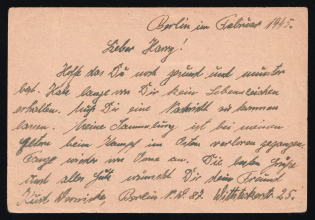 Berlin im Februar 1945.
Lieber Harry!
Hoffe das Du noch gesund und munter
bist. Habe lange von Dir kein Lebenszeichen
erhalten. Dir eine Nachricht zu kommen
lassen. Meine Sammlung ist bei meinen
beim Kampf im Osten verloren gegangen.
Fange wieder von an. Die besten Grüße
und alles Gute wünscht Dir dein Freund
Kurt Berlin N.W. 87. 25.